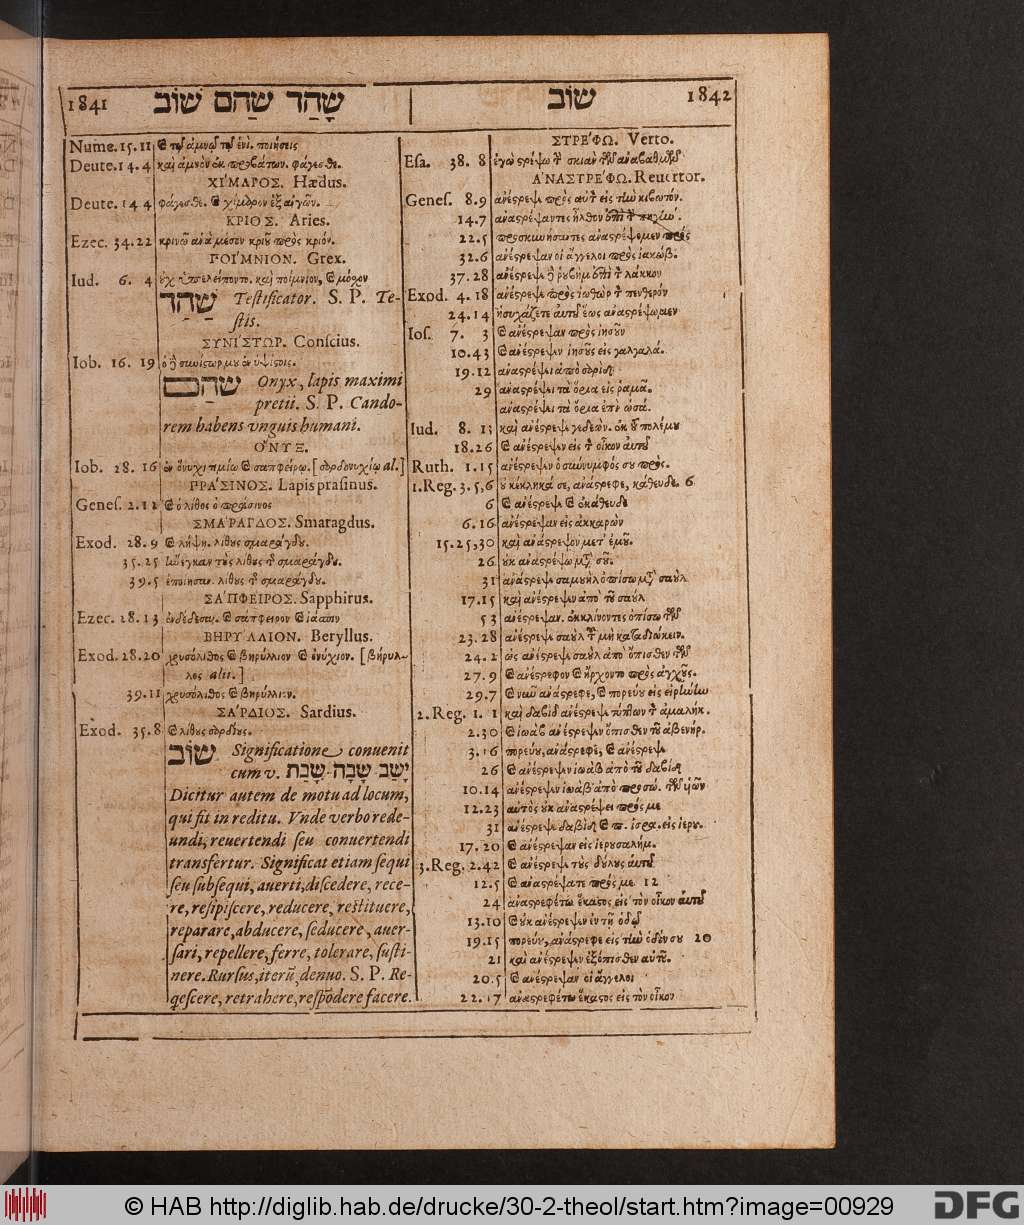 1841 שָׂהַד שֹׁהַם שׁוֹב
Nume. 15. 11 τῷ ἀμνῷ τῷ ἑνὶ. ποιήσεις
Deute. 14. 4 καὶ ἀμνὸν ἐκ προβάτων. φάγεσθε.
ΧΙ´ΜΑΡΟΣ. Hædus.
Deute. 14 4 φάγεσθε. χίμαρον ἐξ αἰγῶν.
ΚΡΙΟΣ. Aries.
Ezec. 34. 22 κρινῶ ἀνὰ μέσον κριοῦ πρὸς κριόν.
ΠΟΙ´ΜΝΙΟΝ. Grex.
Iud. 6. 4 καὶ ποίμνιον, μόσχον
שָׂהַד Testificator. S. P. Te-
stis.
ΣΥΝΙ´ΣΤΩΡ. Conscius.
Iob. 16. 19 ὁ συνίστωρ μου ἐν ὑψίστοις.
שֹׁהַם Onyx, lapis maximi
pretii. S. P. Cando-
rem habens vnguis humani.
Ο῎ΝΥΞ.
Iob. 28. 16 ἐν ὄνυχι τιμίῳ σαπφείρῳ. [σαρδονυχίῳ al.]
ΠΡΑ´ΣΙΝΟΣ. Lapis prasinus.
Genes. 2. 12 ὁ λίθος ὁ πράσινος
ΣΜΑ´ΡΑΓΔΟΣ. Smaragdus.
Exod. 28. 9 λήψῃ. λίθους σμαράγδου.
35. 25 τοὺς λίθους τῆς σμαράγδου.
39. 5 ἐποίησαν. λίθους τῆς σμαράγδου.
ΣΑ´ΠΦΕΙΡΟΣ. Sapphirus.
Ezec. 28. 13 ἐνδέδεσαι. σάπφειρον ἴασπιν
ΒΗΡΥ´ΛΛΙΟΝ. Beryllus.
Exod. 28. 20 χρυσόλιθος βηρύλλιον ὀνύχιον. [βήρυλ-
λος alii.]
39. 11 χρυσόλιθος βηρύλλιον.
ΣΑ´ΡΔΙΟΣ. Sardius.
Exod. 35. 8 λίθους σαρδίους.
שׁוֹב Significatione conuenit
cum v. יָשַׁב שָׁבָה שָׁבַת
Dicitur autem de motu ad locum,
qui fit in reditu. Vnde verbo rede-
undi, reuertendi seu conuertendi
transfertur. Significat etiam sequi
seu subsequi, auerti, discedere, rece-
re, resipiscere, reducere, restituere,
reparare, abducere, seducere, auer-
sari, repellere, ferre, tolerare, susti-
nere. Rursus, iterũ, denuo. S. P. Re-
qescere, retrahere, respõdere facere.
שׁוֹב 1842
ΣΤΡΕ´ΦΩ. Verto.
Esa. 38. 8 ἐγὼ στρέψω σκιὰν τῶν ἀναβαθμῶν
Α᾿ΝΑΣΤΡΕ´ΦΩ. Reuertor.
Genes. 8. 9 ἀνέστρεψε πρὸς αὐτὸν εἰς τὴν κιβωτόν.
14. 7 ἀναστρέψαντες ἦλθον ἐπὶ τὴν πηγήν.
22. 5 προσκυνήσαντες ἀναστρέψομεν πρὸς
32. 6 ἀνέστρεψαν οἱ ἄγγελοι πρὸς ἰακώβ.
37. 28 ἀνέστρεψε ῥουβὴμ ἐπὶ τὸν λάκκον
Exod. 4. 18 ἀνέστρεψε πρὸς ἰωθὼρ τὸν πενθερόν
24. 14 ἡσυχάζετε αὐτοῦ ἕως ἀναστρέψωμεν
Ios. 7. 3 ἀνέστρεψαν πρὸς ἰησοῦν
10. 43 ἀνέστρεψεν ἰησοῦς εἰς γαλγαλά.
19. 12 ἀναστρέψει ἀπὸ
29 ἀναστρέψει τὰ ὅρια εἰς ῥαμᾶ.
ἀναστρέψει τὰ ὅρια ἐπὶ ὡσά.
Iud. 8. 13 καὶ ἀνέστρεψε γεδεὼν. ἐκ τοῦ πολέμου
18. 26 ἀνέστρεψεν εἰς τὸν οἶκον αὐτοῦ
Ruth. 1. 15 ἀνέστρεψεν ὁ σύννυμφός σου πρὸς.
1. Reg. 3. 5, 6 οὐ κέκληκά σε, ἀνάστρεφε, κάθευδε. 6
6 ἀνέστρεψε ἐκάθευδε
6. 16 ἀνέστρεψαν εἰς ἀκκαρὼν
15. 25, 30 καὶ ἀνάστρεψον μετ᾿ ἐμοῦ.
26 οὐκ ἀναστρέψω μετὰ σοῦ.
31 ἀνέστρεψε σαμουὴλ ὀπίσω μετὰ σαοὺλ
17. 15 καὶ ἀνέστρεψεν ἀπὸ τοῦ σαοὺλ
53 ἀνέστρεψαν. ἐκκλίνοντες ὀπίσω τῶν
23. 28 ἀνέστρεψε σαοὺλ τοῦ μὴ καταδιώκειν.
24. 2 ὡς ἀνέστρεψε σαοὺλ ἀπὸ ὄπισθεν τῶν
27. 9 ἀνέστρεφον ἤρχοντο πρὸς ἀγχοῦς.
29. 7 νῦν ἀνάστρεφε, πορεύου εἰς εἰρήνην
2. Reg. 1. 1 καὶ δαβὶδ ἀνέστρεψε τύπτων τὸν ἀμαλήκ.
2. 30 ἰωὰβ ἀνέστρεψεν ὄπισθεν τοῦ ἀβεννήρ.
3. 16 πορεύου, ἀνάστρεφε, ἀνέστρεψε
26 ἀνέστρεψεν ἰωὰβ ἀπὸ τοῦ δαβὶδ
10. 14 ἀνέστρεψεν ἰωὰβ ἀπὸ
12. 23 αὐτὸς οὐκ ἀναστρέψει πρός με
31 ἀνέστρεψε δαβὶδ εἰς ἱερου.
17. 20 ἀνέστρεψαν εἰς ἱερουσαλήμ.
3. Reg. 2. 42 ἀνέστρεψε τοὺς δούλους αὐτοῦ
12. 5 ἀναστρέψατε πρός με 12
24 ἀναστρεφέτω ἕκαστος εἰς τὸν οἶκον αὐτοῦ
13. 10 οὐκ ἀνέστρεψεν ἐν τῇ ὁδῷ
19. 15 πορεύου, ἀνάστρεφε εἰς τὴν ὁδόν σου 20
21 καὶ ἀνέστρεψεν ἐξόπισθεν αὐτοῦ.
20. 5 ἀνέστρεψαν οἱ ἄγγελοι
22. 17 ἀναστρεφέτω ἕκαστος εἰς τὸν οἶκον
© HAB http://diglib.hab.de/drucke/30-2-theol/start.htm?image=00929
DFG